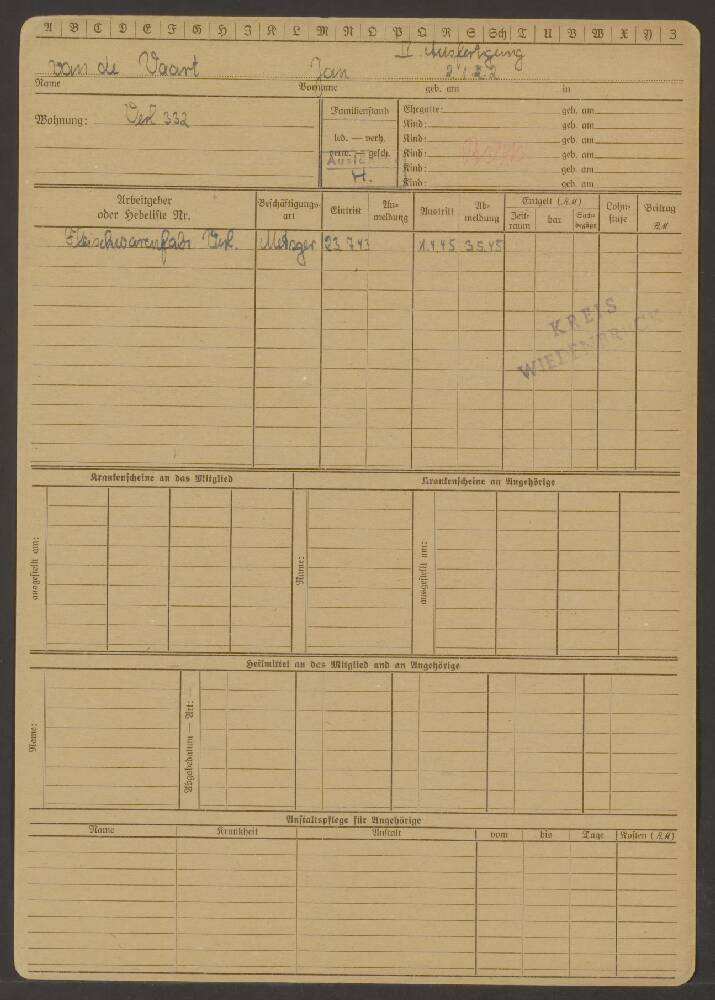 A B C D E F G H J K L M N O P Q R S Sch T U V W X Y Z
II. Ausfertigung
van de Vaart Jan 2.1.22
Name Vorname geb. am in
Wohnung: Verl 332
Familienstand
led. — verh.
verw. — gesch.
H.
Ehegatte: geb. am
Kind: geb. am
Kind: geb. am
Kind: geb. am
Kind: geb. am
Kind: geb. am
Arbeitgeber oder Hebeliste Nr.
Beschäftigungsart
Eintritt
Anmeldung
Austritt
Abmeldung
Entgelt (RM)
Zeitraum
bar
Sachbezüge
Lohnstufe
Beitrag RM
Fleischwarenfabr. Verl. Metzger 23.7.43 1.4.45 3.5.45
KREIS
WIEDENBRÜCK
Krankenscheine an das Mitglied Krankenscheine an Angehörige
ausgestellt am:
Name:
ausgestellt am:
Heilmittel an das Mitglied und an Angehörige
Name:
Abgabedatum — Art:
Anstaltspflege für Angehörige
Name Krankheit Anstalt vom bis Tage Kosten (RM)